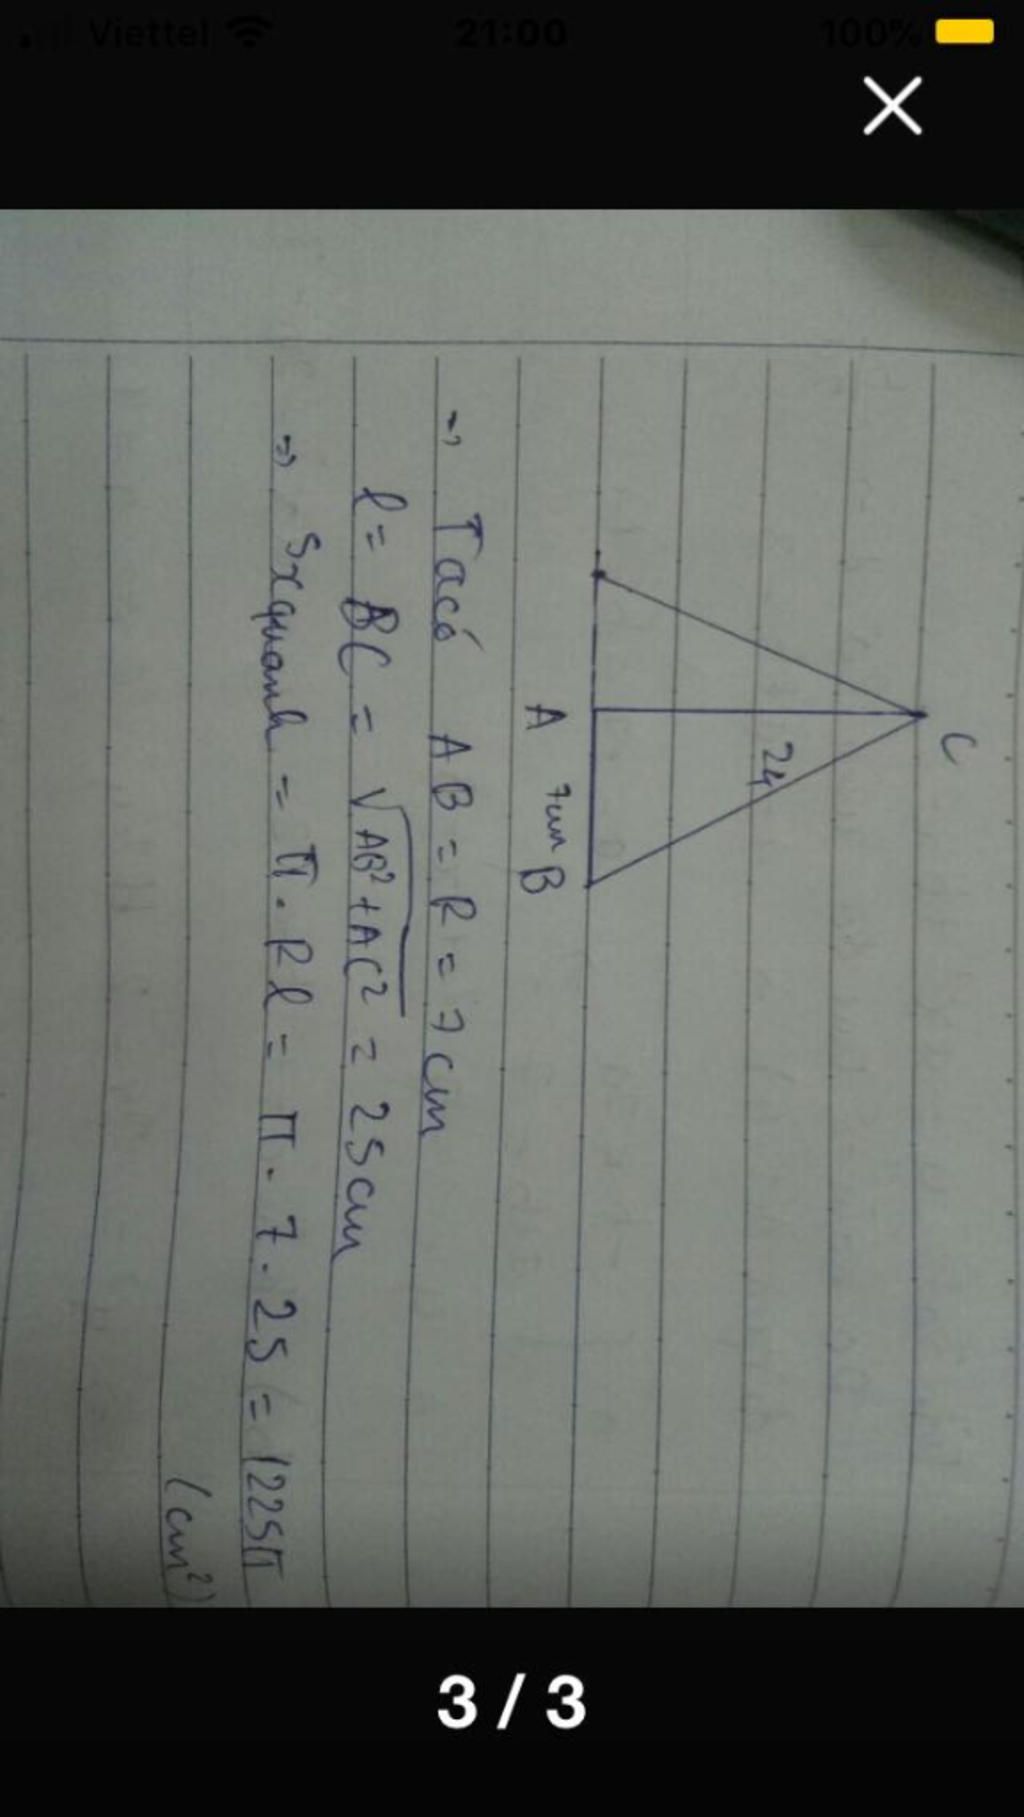 Viettel
21:00
100%
C
24
A 7cm B
=> Ta có AB = R = 7cm
l = BC = √AB²+AC² = 25cm
=> Sxquanh = π. Rl = π. 7. 25 = 1225π
(cm²)
3 / 3